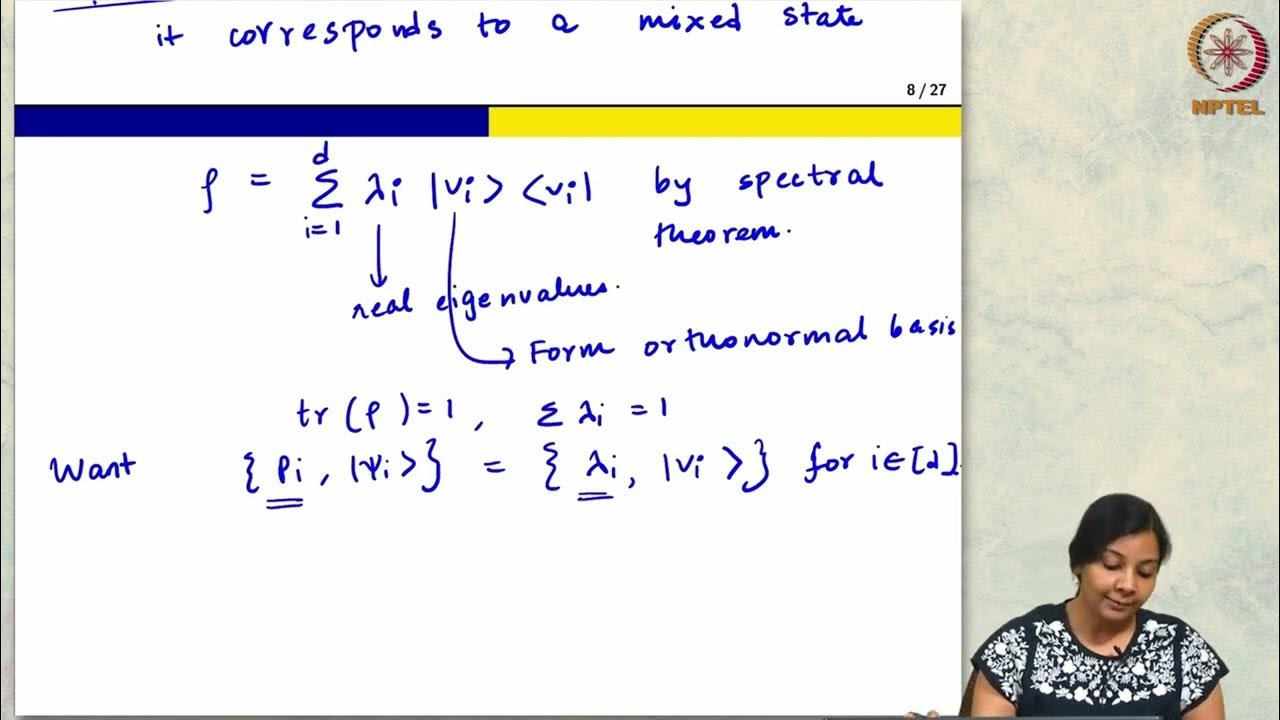 it corresponds to a mixed state
8 / 27
NPTEL
ρ = Σ_{i=1}^{d} λi |vi> <vi| by spectral
theorem.
real eigenvalues.
Form orthonormal basis
tr (ρ) = 1 , Σ λi = 1
Want { pi , |ψi> } = { λi , |vi > } for i ∈ [d].